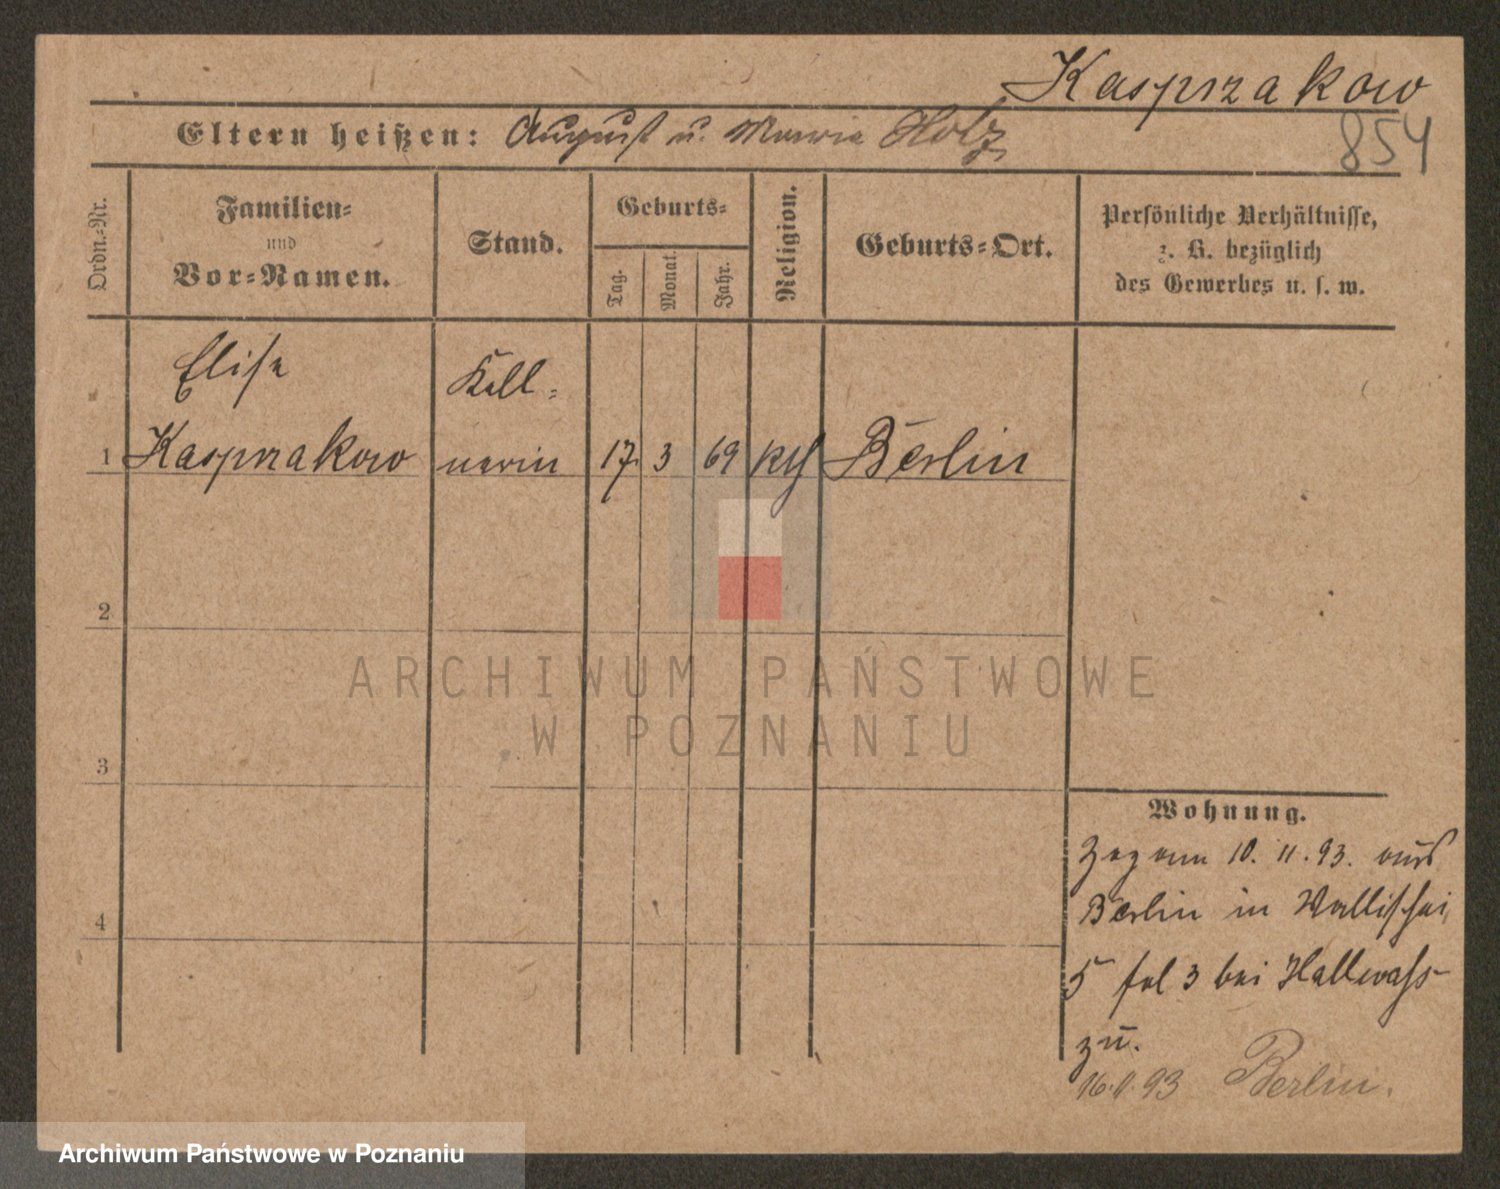 Kasprzakow
854
Eltern heißen: August u. Maria Holz
Ordn.-Nr.
Familien-
und
Vor-Namen.
Stand.
Geburts-
Tag.
Monat.
Jahr.
Religion.
Geburts-Ort.
Persönliche Verhältnisse,
z. B. bezüglich
des Gewerbes u. s. w.
Elise Kell-
1 Kasprzakow nerin 17. 3 69 kth Berlin
2
3
4
Wohnung.
Zog am 10. 11. 93. aus
Berlin in Wallischei
5 fol 3 bei Hallwass
zu.
93 Berlin.
ARCHIWUM PAŃSTWOWE
W POZNANIU
Archiwum Państwowe w Poznaniu